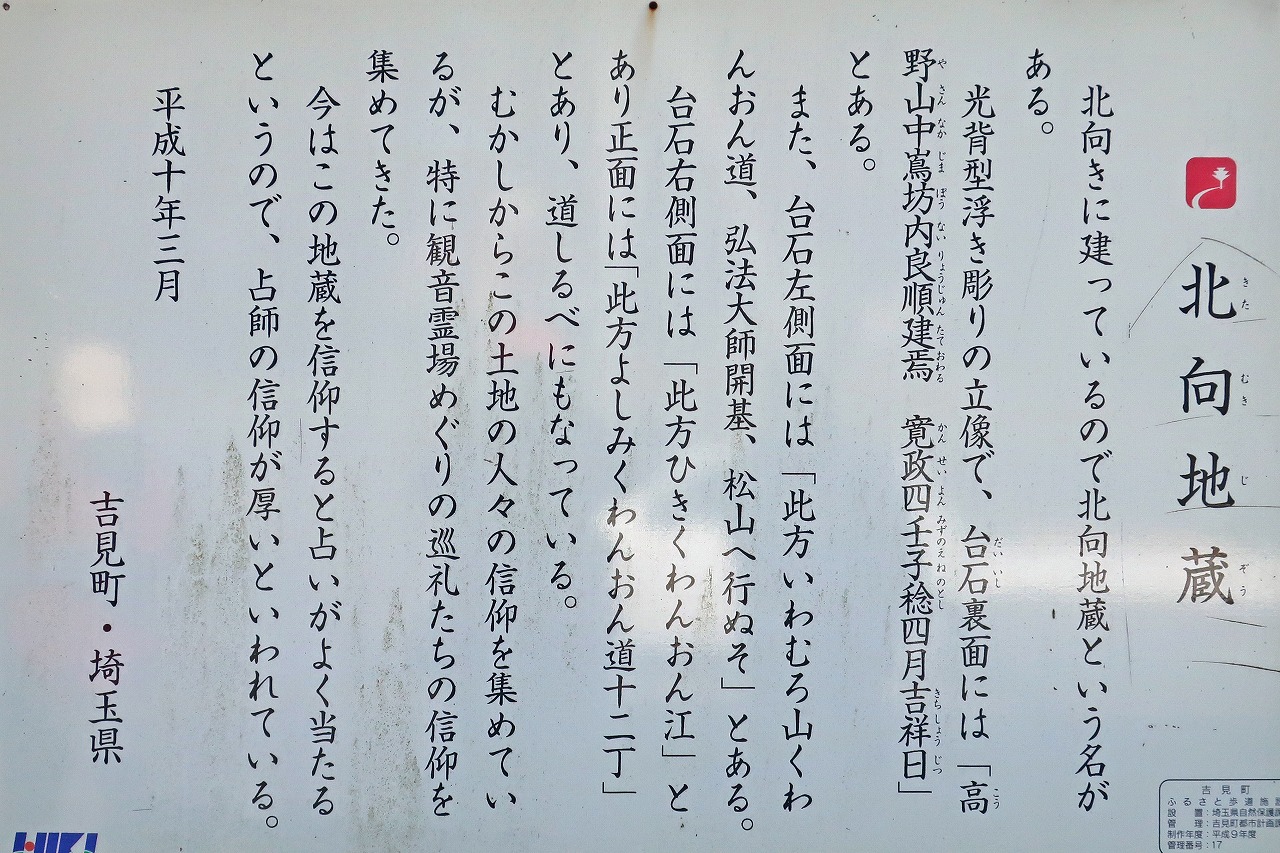 北向地蔵
きたむきじぞう
北向きに建っているので北向地蔵という名が
ある。
光背型浮き彫りの立像で、台石裏面には「高
だいいし
こう
野山中嶌坊内良順建焉　寛政四壬子稔四月吉祥日」
やさんなかじまぼうないりょうじゅんたておわる　かんせいよんみずのえねのとし　きちしょうじつ
とある。
また、台石左側面には「此方いわむろ山くわ
んおん道、弘法大師開基、松山へ行ぬそ」とある。
台石右側面には「此方ひきくわんおん江」と
あり正面には「此方よしみくわんおん道十二丁」
とあり、道しるべにもなっている。
むかしからこの土地の人々の信仰を集めてい
るが、特に観音霊場めぐりの巡礼たちの信仰を
集めてきた。
今はこの地蔵を信仰すると占いがよく当たる
というので、占師の信仰が厚いといわれている。
平成十年三月
吉見町・埼玉県
吉見町
ふるさと歩道施設
設　置：埼玉県自然保護課
管　理：吉見町都市計画課
制作年度：平成9年度
管理番号：17
HIKI